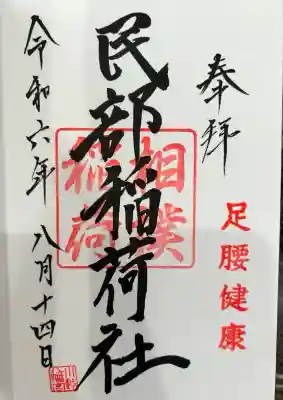 奉拝
足腰健康
民部稲荷社
相撲
稲荷
令和六年 八月十四日